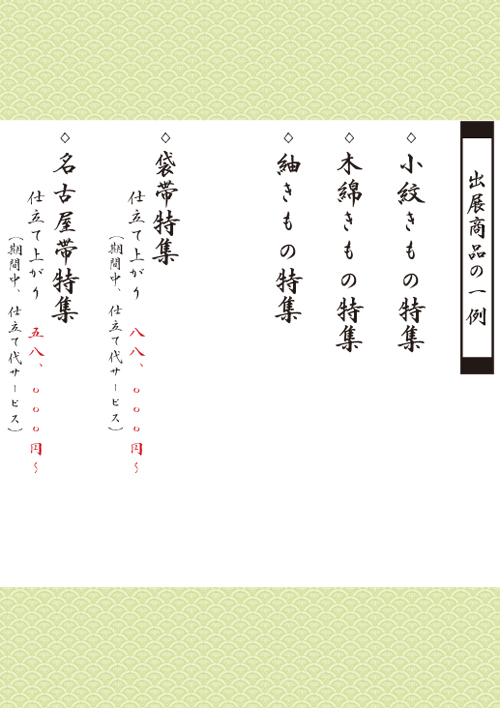 出展商品の一例
◇小紋きもの特集
◇木綿きもの特集
◇紬きもの特集
◇袋帯特集
仕立て上がり 八八、〇〇〇円~
(期間中、仕立て代サービス)
◇名古屋帯特集
仕立て上がり 五八、〇〇〇円~
(期間中、仕立て代サービス)